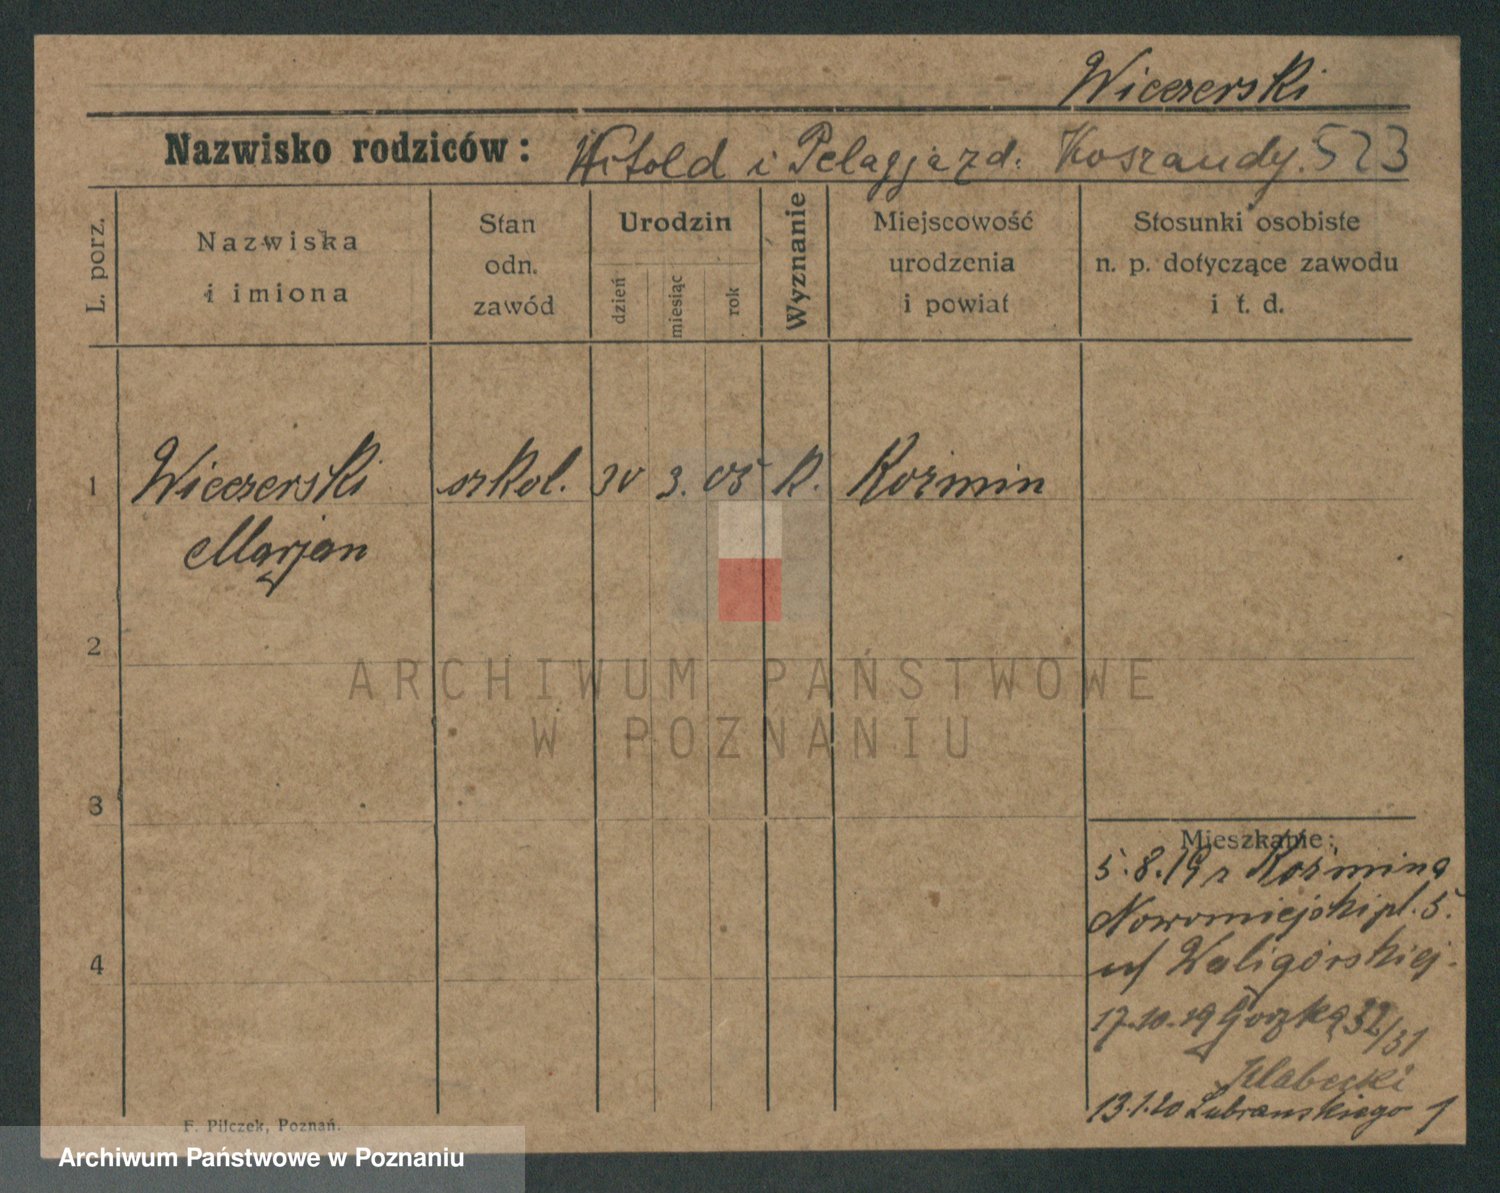 Wieczerski
Nazwisko rodziców: Witold i Pelagja zd. 523
L. porz.
Nazwiska
i imiona
Stan
odn.
zawód
Urodzin
dzień
miesiąc
rok
Wyznanie
Miejscowość
urodzenia
i powiat
Stosunki osobiste
n. p. dotyczące zawodu
i t. d.
1 Wieczerski szkol. 30 3. 05 K. Koźmin
Marjan
2
ARCHIWUM PAŃSTWOWE
W POZNANIU
3
Mieszkanie:
5.8.19 z Koźmina
Nowomiejski pl. 5.
u/ Waligórskiej.
4
17.10.19 32/31
13.1.20 Lubrańskiego 1
F. Pilczek, Poznań.
Archiwum Państwowe w Poznaniu